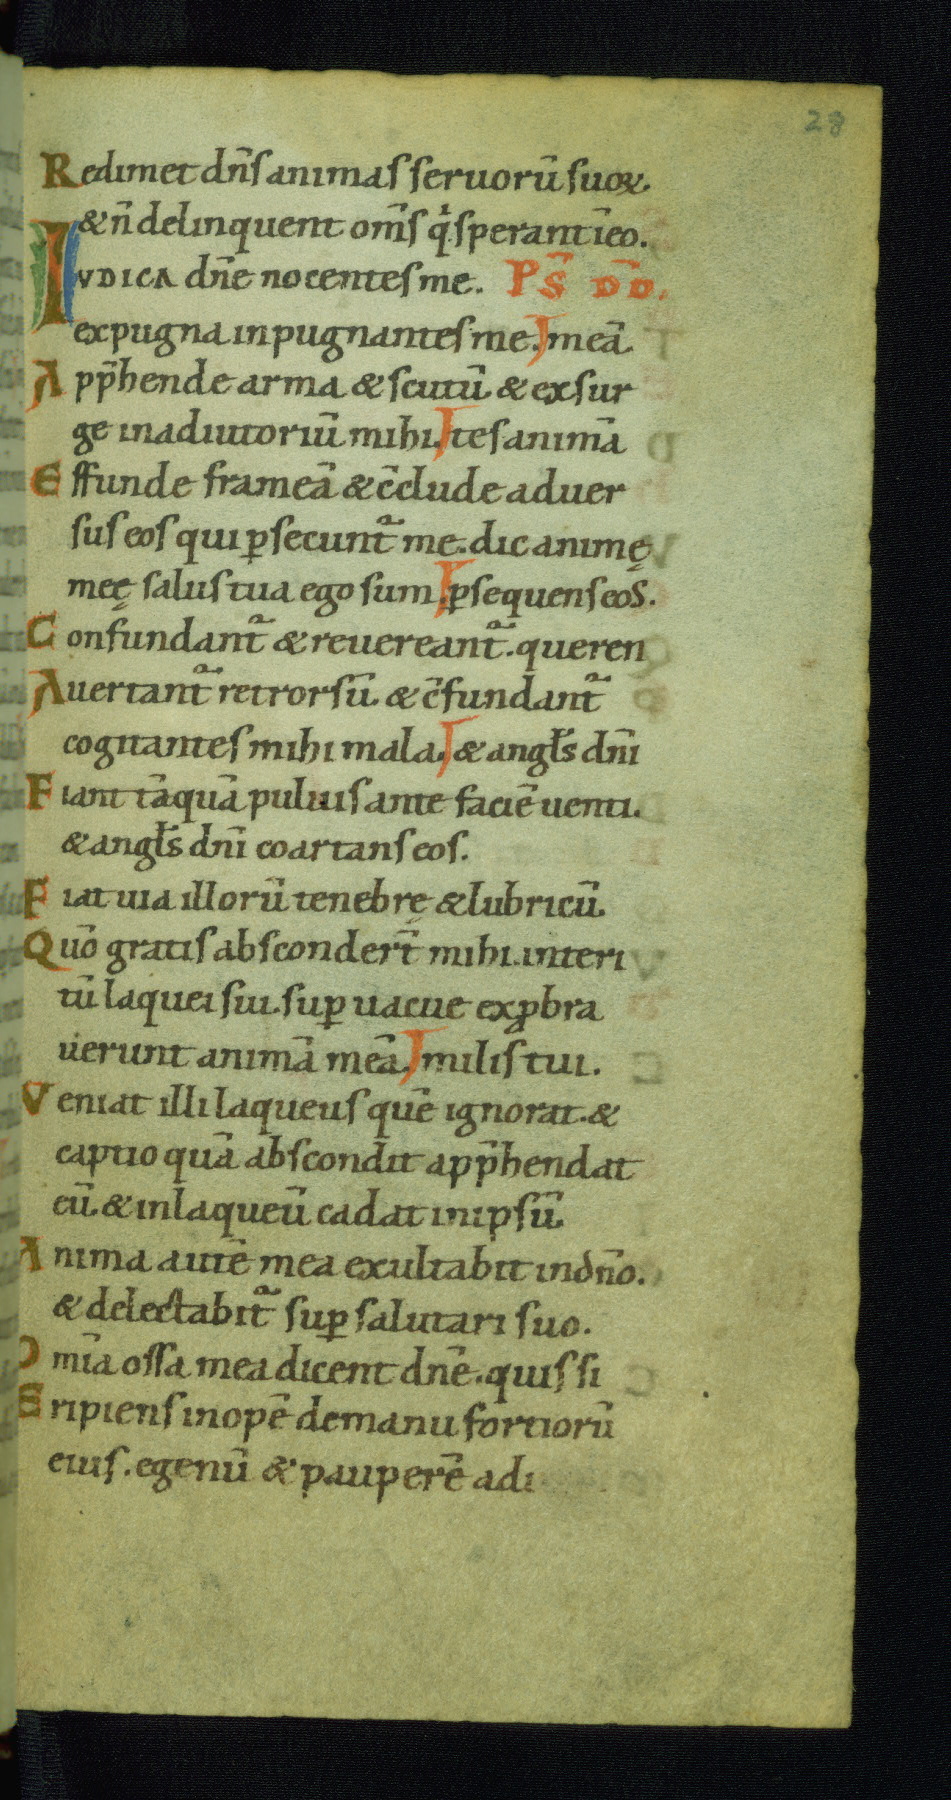 28
Redimet dn̄s animas seruorū suoꝝ.
& n̄ delinquent om̄s q̇ sperant ī eo.
IVDICA dn̄e nocentes me. PS̄ DD̄.
expugna inpugnantes me. meā.
App̄hende arma & scutū & exsur
ge in adiutoriū mihi. tes animā
Effunde frameā & c̄clude aduer
sus eos qui ꝑsecunt᷑ me. dic animę
meę salus tua ego sum. ꝑsequens eos.
Confundant᷑ & reuereant᷑. queren
Auertant᷑ retrorsū & c̄fundant᷑
cogitantes mihi mala. & angl̄s dn̄i
Fiant tāquā puluis ante faciē uenti.
& angl̄s dn̄i coartans eos.
Fiat uia illorū tenebrę & lubricū.
Quō gratis absconder̄t mihi. interi
tū laquei sui. suꝑ uacue exꝓbra
uerunt animā meā. milis tui.
Veniat illi laqueus quē ignorat. &
captio quā abscondit app̄hendat
eū. & in laqueū cadat in ipsū.
Anima autē mea exultabit in dn̄o.
& delectabit᷑ suꝑ salutari suo.
Om̄ia ossa mea dicent dn̄e. quis si
Eripiens inopē de manu fortiorū
eius. egenū & pauperē a di